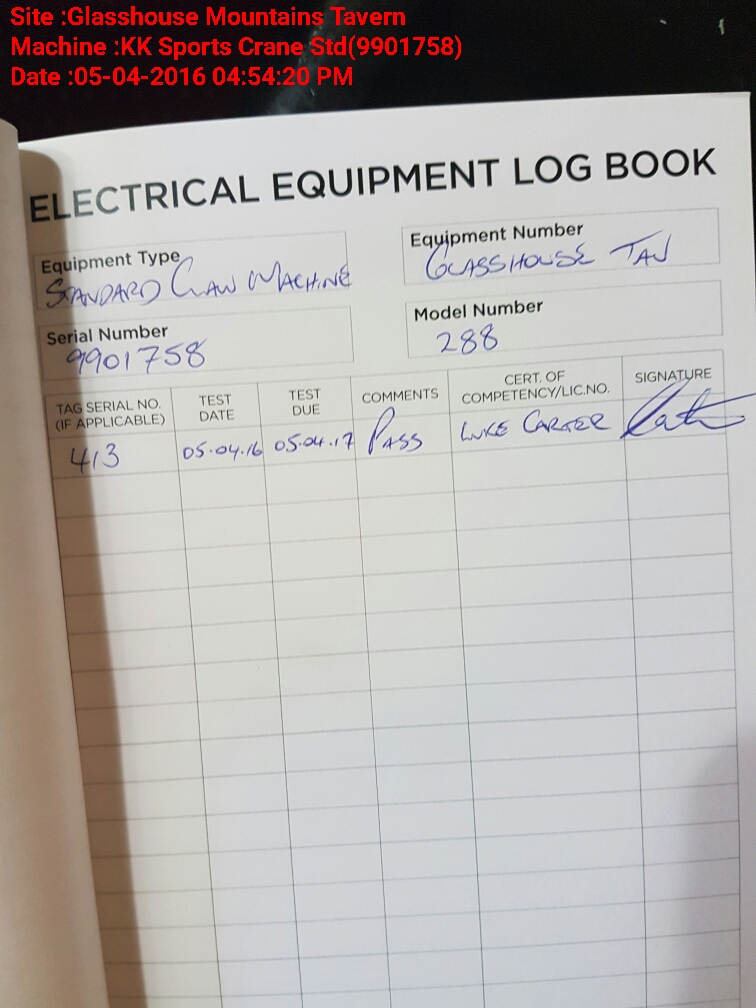 Site :Glasshouse Mountains Tavern
Machine :KK Sports Crane Std(9901758)
Date :05-04-2016 04:54:20 PM
ELECTRICAL EQUIPMENT LOG BOOK
Equipment Type
STANDARD CLAW MACHINE
Equipment Number
GLASSHOUSE TAV
Serial Number
9901758
Model Number
288
TAG SERIAL NO. (IF APPLICABLE)
TEST DATE
TEST DUE
COMMENTS
CERT. OF COMPETENCY/LIC.NO.
SIGNATURE
413 05.04.16 05.04.17 PASS LUKE CARTER